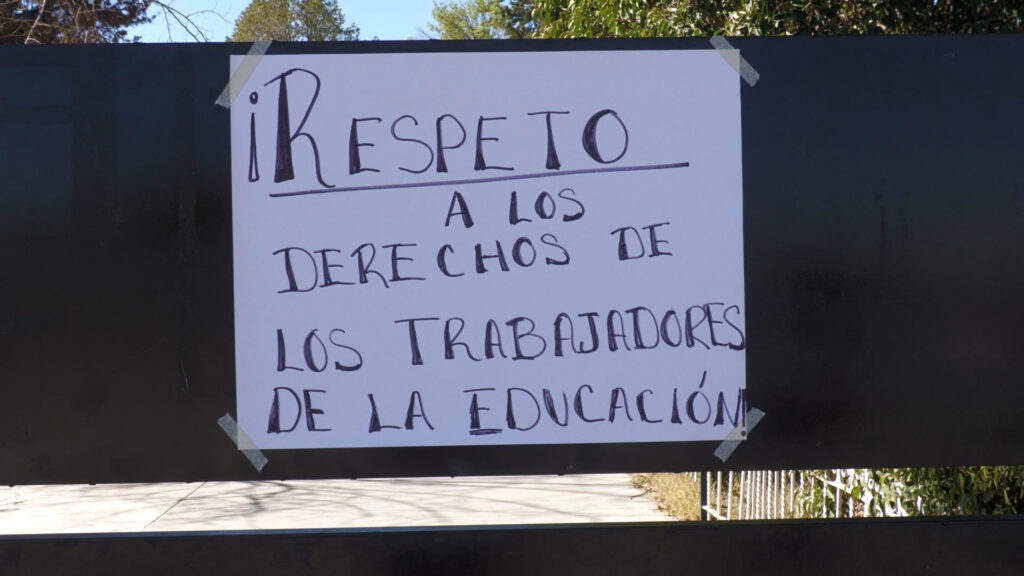 ¡RESPETO
A LOS
DERECHOS DE
LOS TRABAJADORES
DE LA EDUCACIÓN!